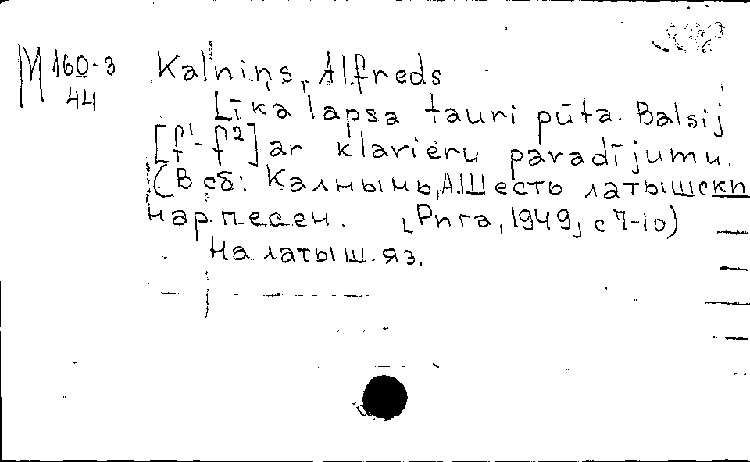 М 160-3 Kalniņs, Alfreds
44
Līka lapsa tauri pūta. Balsij
[f¹-f²] ar klavieru paradījumu.
(В сб: Калнынь, А. Шесть латышски
нар. песен. [Рига, 1949, с 7-10)
На латыш. яз.